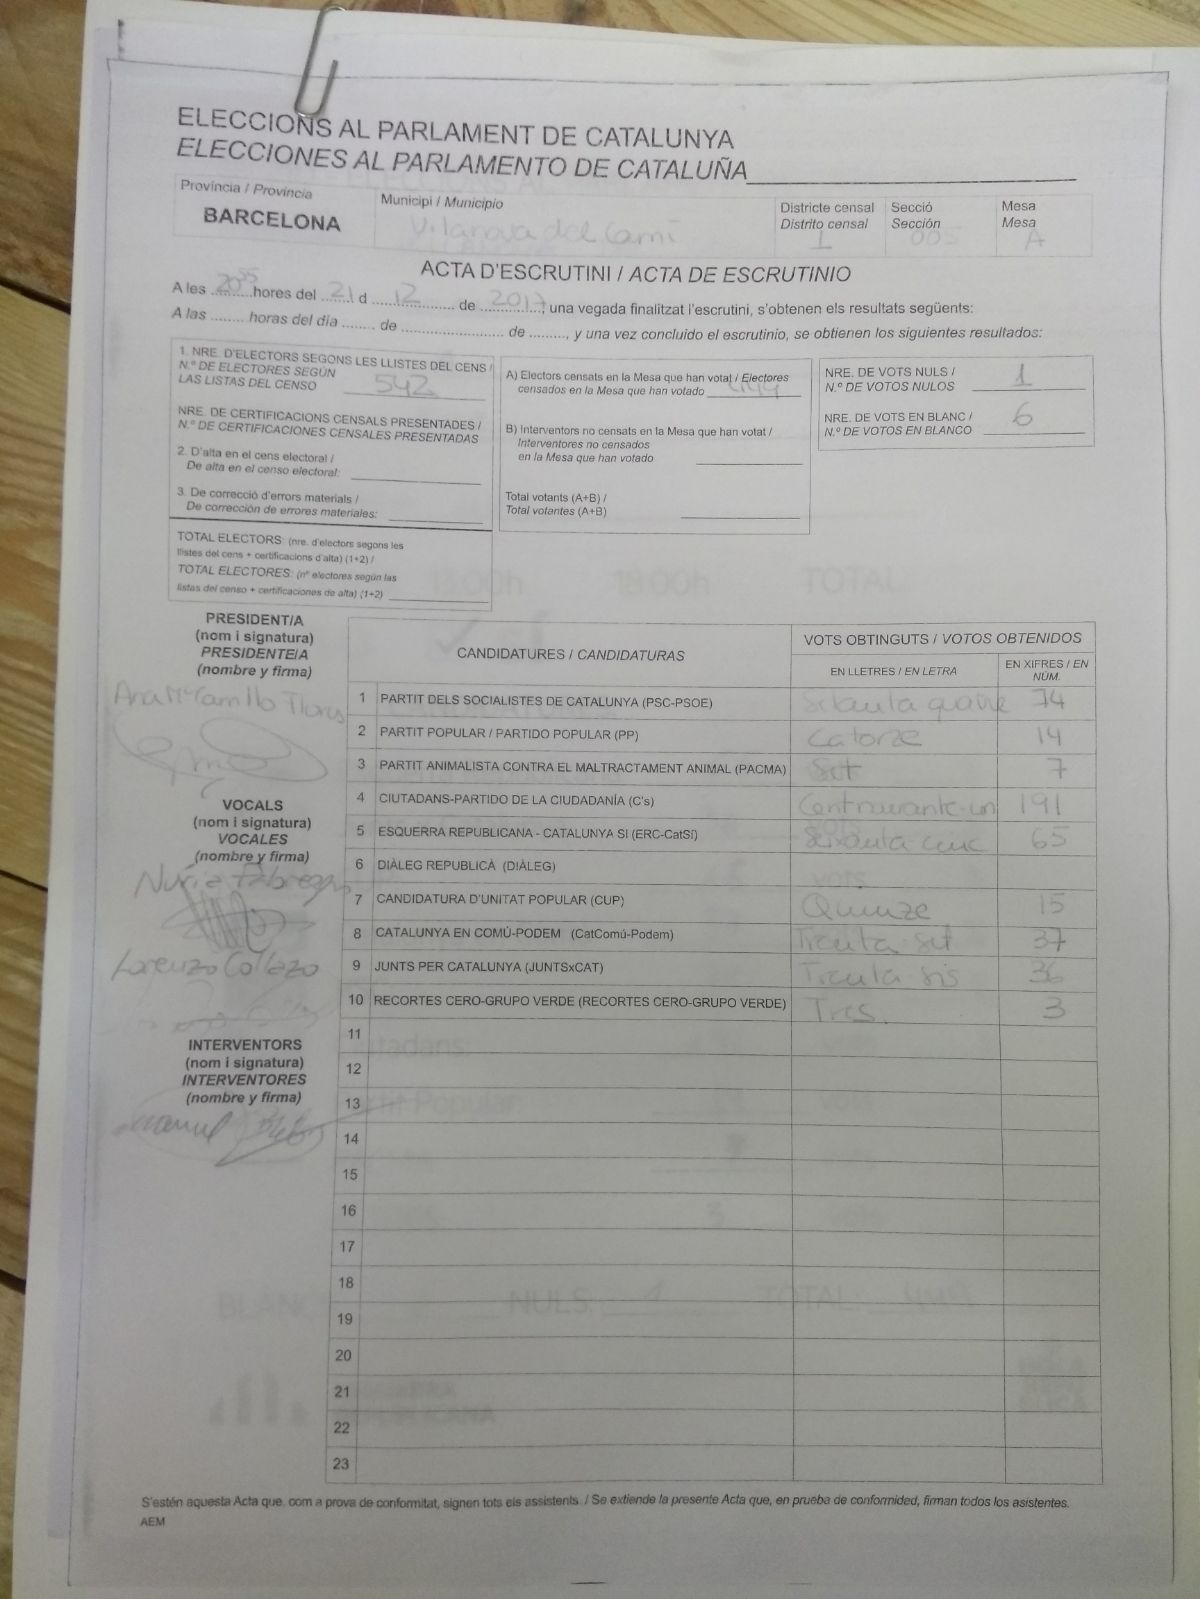 ELECCIONS AL PARLAMENT DE CATALUNYA
ELECCIONES AL PARLAMENTO DE CATALUÑA
Província / Provincia
BARCELONA
Municipi / Municipio
Vilanova del Camí
Districte censal
Distrito censal
1
Secció
Sección
005
Mesa
Mesa
A
ACTA D'ESCRUTINI / ACTA DE ESCRUTINIO
A les 20 35 hores del 21 d 12 de 2017, una vegada finalitzat l'escrutini, s'obtenen els resultats següents:
A las ........ horas del día ........ de ...................... de ........., y una vez concluido el escrutinio, se obtienen los siguientes resultados:
1. NRE. D'ELECTORS SEGONS LES LLISTES DEL CENS /
N.º DE ELECTORES SEGÚN
LAS LISTAS DEL CENSO 542
NRE. DE CERTIFICACIONS CENSALS PRESENTADES /
N.º DE CERTIFICACIONES CENSALES PRESENTADAS
2. D'alta en el cens electoral /
De alta en el censo electoral:
3. De correcció d'errors materials /
De corrección de errores materiales:
TOTAL ELECTORS: (nre. d'electors segons les
llistes del cens + certificacions d'alta) (1+2) /
TOTAL ELECTORES: (nº electores según las
listas del censo + certificaciones de alta) (1+2)
A) Electors censats en la Mesa que han votat / Electores
censados en la Mesa que han votado
B) Interventors no censats en la Mesa que han votat /
Interventores no censados
en la Mesa que han votado
Total votants (A+B) /
Total votantes (A+B)
NRE. DE VOTS NULS /
N.º DE VOTOS NULOS 1
NRE. DE VOTS EN BLANC /
N.º DE VOTOS EN BLANCO 6
PRESIDENT/A
(nom i signatura)
PRESIDENTE/A
(nombre y firma)
Ana Mª Carrillo Flores
VOCALS
(nom i signatura)
VOCALES
(nombre y firma)
Núria Fàbregas
Lorenzo Collazo
INTERVENTORS
(nom i signatura)
INTERVENTORES
(nombre y firma)
CANDIDATURES / CANDIDATURAS
VOTS OBTINGUTS / VOTOS OBTENIDOS
EN LLETRES / EN LETRA
EN XIFRES / EN NÚM.
1 PARTIT DELS SOCIALISTES DE CATALUNYA (PSC-PSOE) Setanta quatre 74
2 PARTIT POPULAR / PARTIDO POPULAR (PP) Catorze 14
3 PARTIT ANIMALISTA CONTRA EL MALTRACTAMENT ANIMAL (PACMA) Set 7
4 CIUTADANS-PARTIDO DE LA CIUDADANÍA (C's) 191
5 ESQUERRA REPUBLICANA - CATALUNYA SI (ERC-CatSí) Seixanta cinc 65
6 DIÀLEG REPUBLICÀ (DIÀLEG)
7 CANDIDATURA D'UNITAT POPULAR (CUP) Quinze 15
8 CATALUNYA EN COMÚ-PODEM (CatComú-Podem) Trenta-set 37
9 JUNTS PER CATALUNYA (JUNTSxCAT) Trenta-sis 36
10 RECORTES CERO-GRUPO VERDE (RECORTES CERO-GRUPO VERDE) Tres 3
11
12
13
14
15
16
17
18
19
20
21
22
23
S'estén aquesta Acta que, com a prova de conformitat, signen tots els assistents. / Se extiende la presente Acta que, en prueba de conformidad, firman todos los asistentes.
AEM